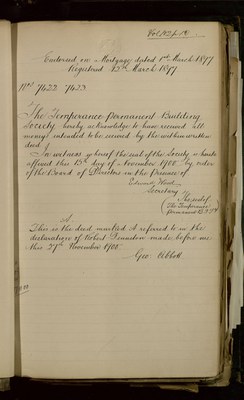 Endorsed on Mortgage dated 1st March 1877
Registered 22nd March 1877
Nos 7422 7423
The Temperance Permanent Building
Society hereby acknowledge to have received all
moneys intended to be secured by the within written
deed
In witness whereof the seal of the Society is hereto
affixed this 13th day of November 1900 by order
of the Board of Directors in the presence of
Edward Wood
Secretary
The seal of
The Temperance
Permanent B. S.
A
This is the deed marked A referred to in the
declaration of Robert made before me
this 27th November 1900
Geo. Abbott